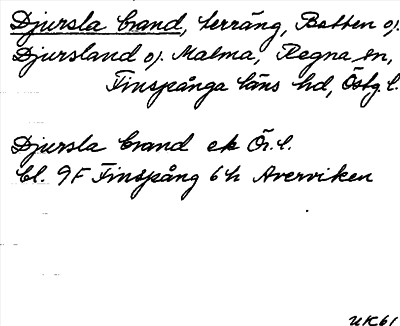 Djursla brand, terräng, Botten o).
Djursland o). Malma, Regna sn,
Finspånga läns hd, Östg. l.
Djursla brand ek Ör. l.
bl. 9F Finspång 6h Averviken
UK61